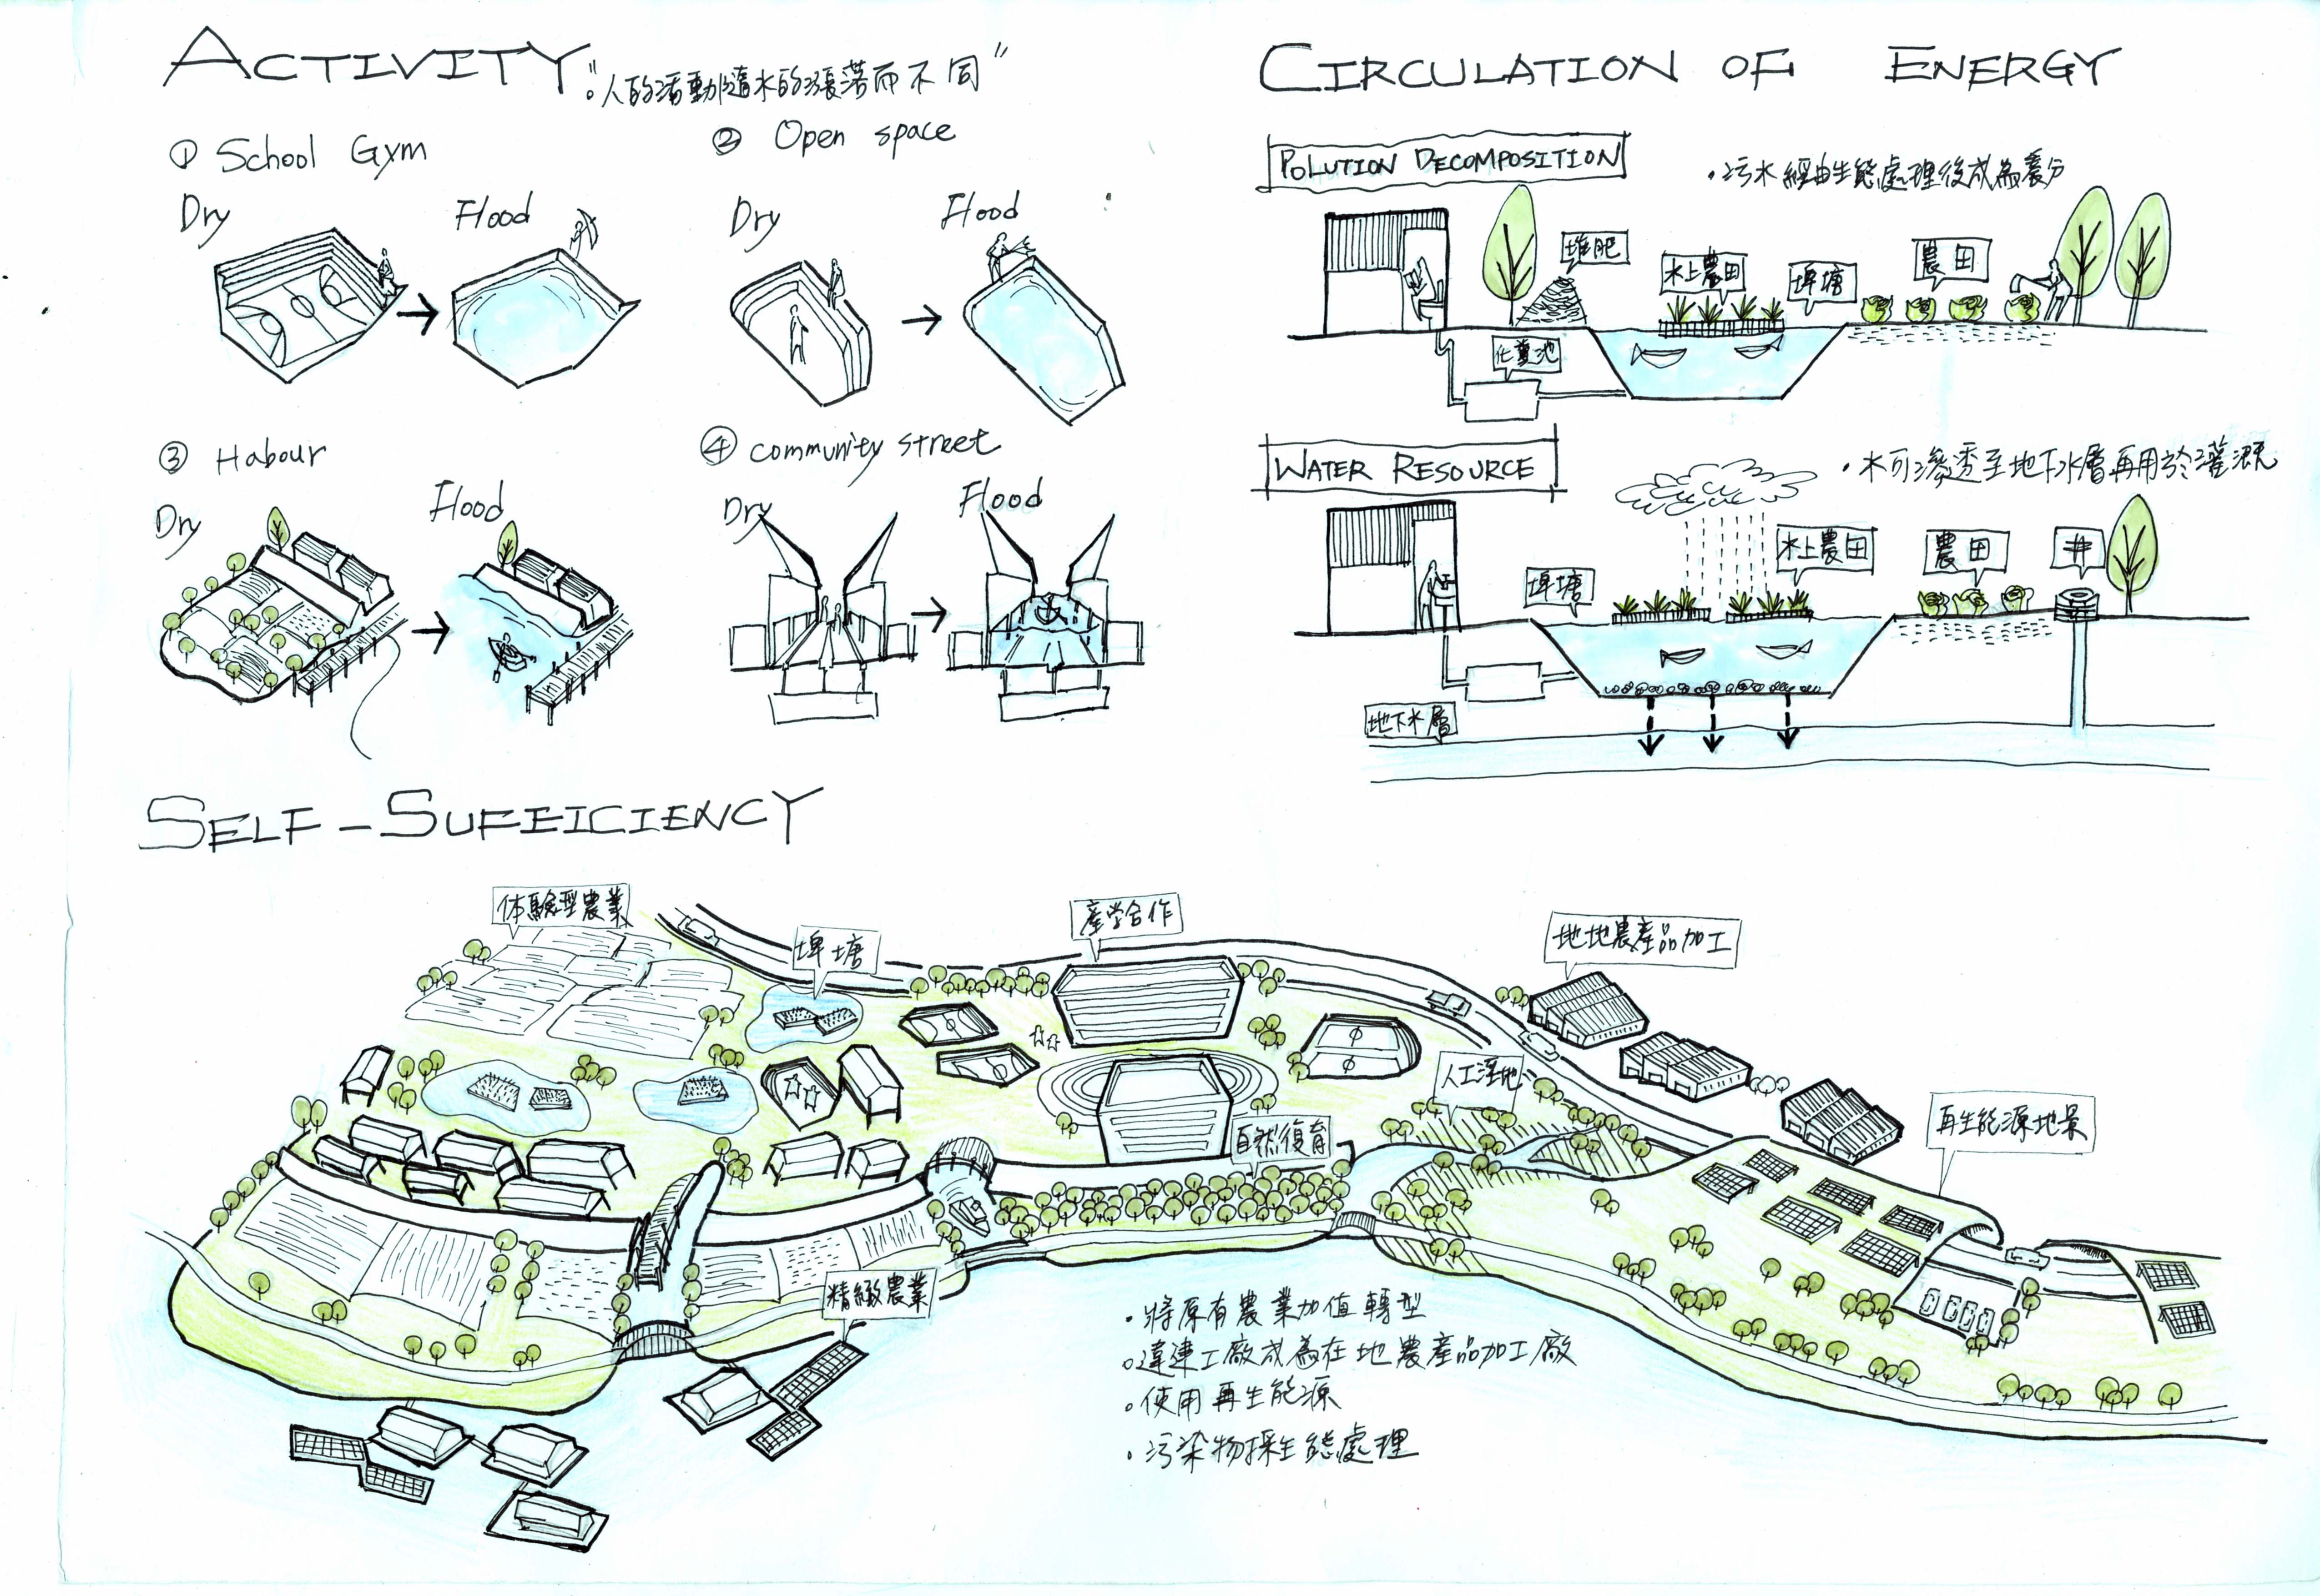 ACTIVITY
"人的活動隨水的漲落而不同"
① School Gym
Dry
Flood
② Open space
Dry
Flood
③ Habour
Dry
Flood
④ community street
Dry
Flood
CIRCULATION OF ENERGY
POLUTION DECOMPOSITION
•污水經由生態處理後成為養分
堆肥
水上農田
埤塘
農田
化糞池
WATER RESOURCE
•水可滲透至地下水層再用於灌溉
埤塘
水上農田
農田
井
地下水層
SELF-SUFFICIENCY
体驗型農業
埤塘
産学合作
地地農產品加工
人工溼地
自然復育
再生能源地景
精緻農業
•將原有農業加值轉型
•違建工廠成為在地農產品加工廠
•使用再生能源
•污染物採生態處理